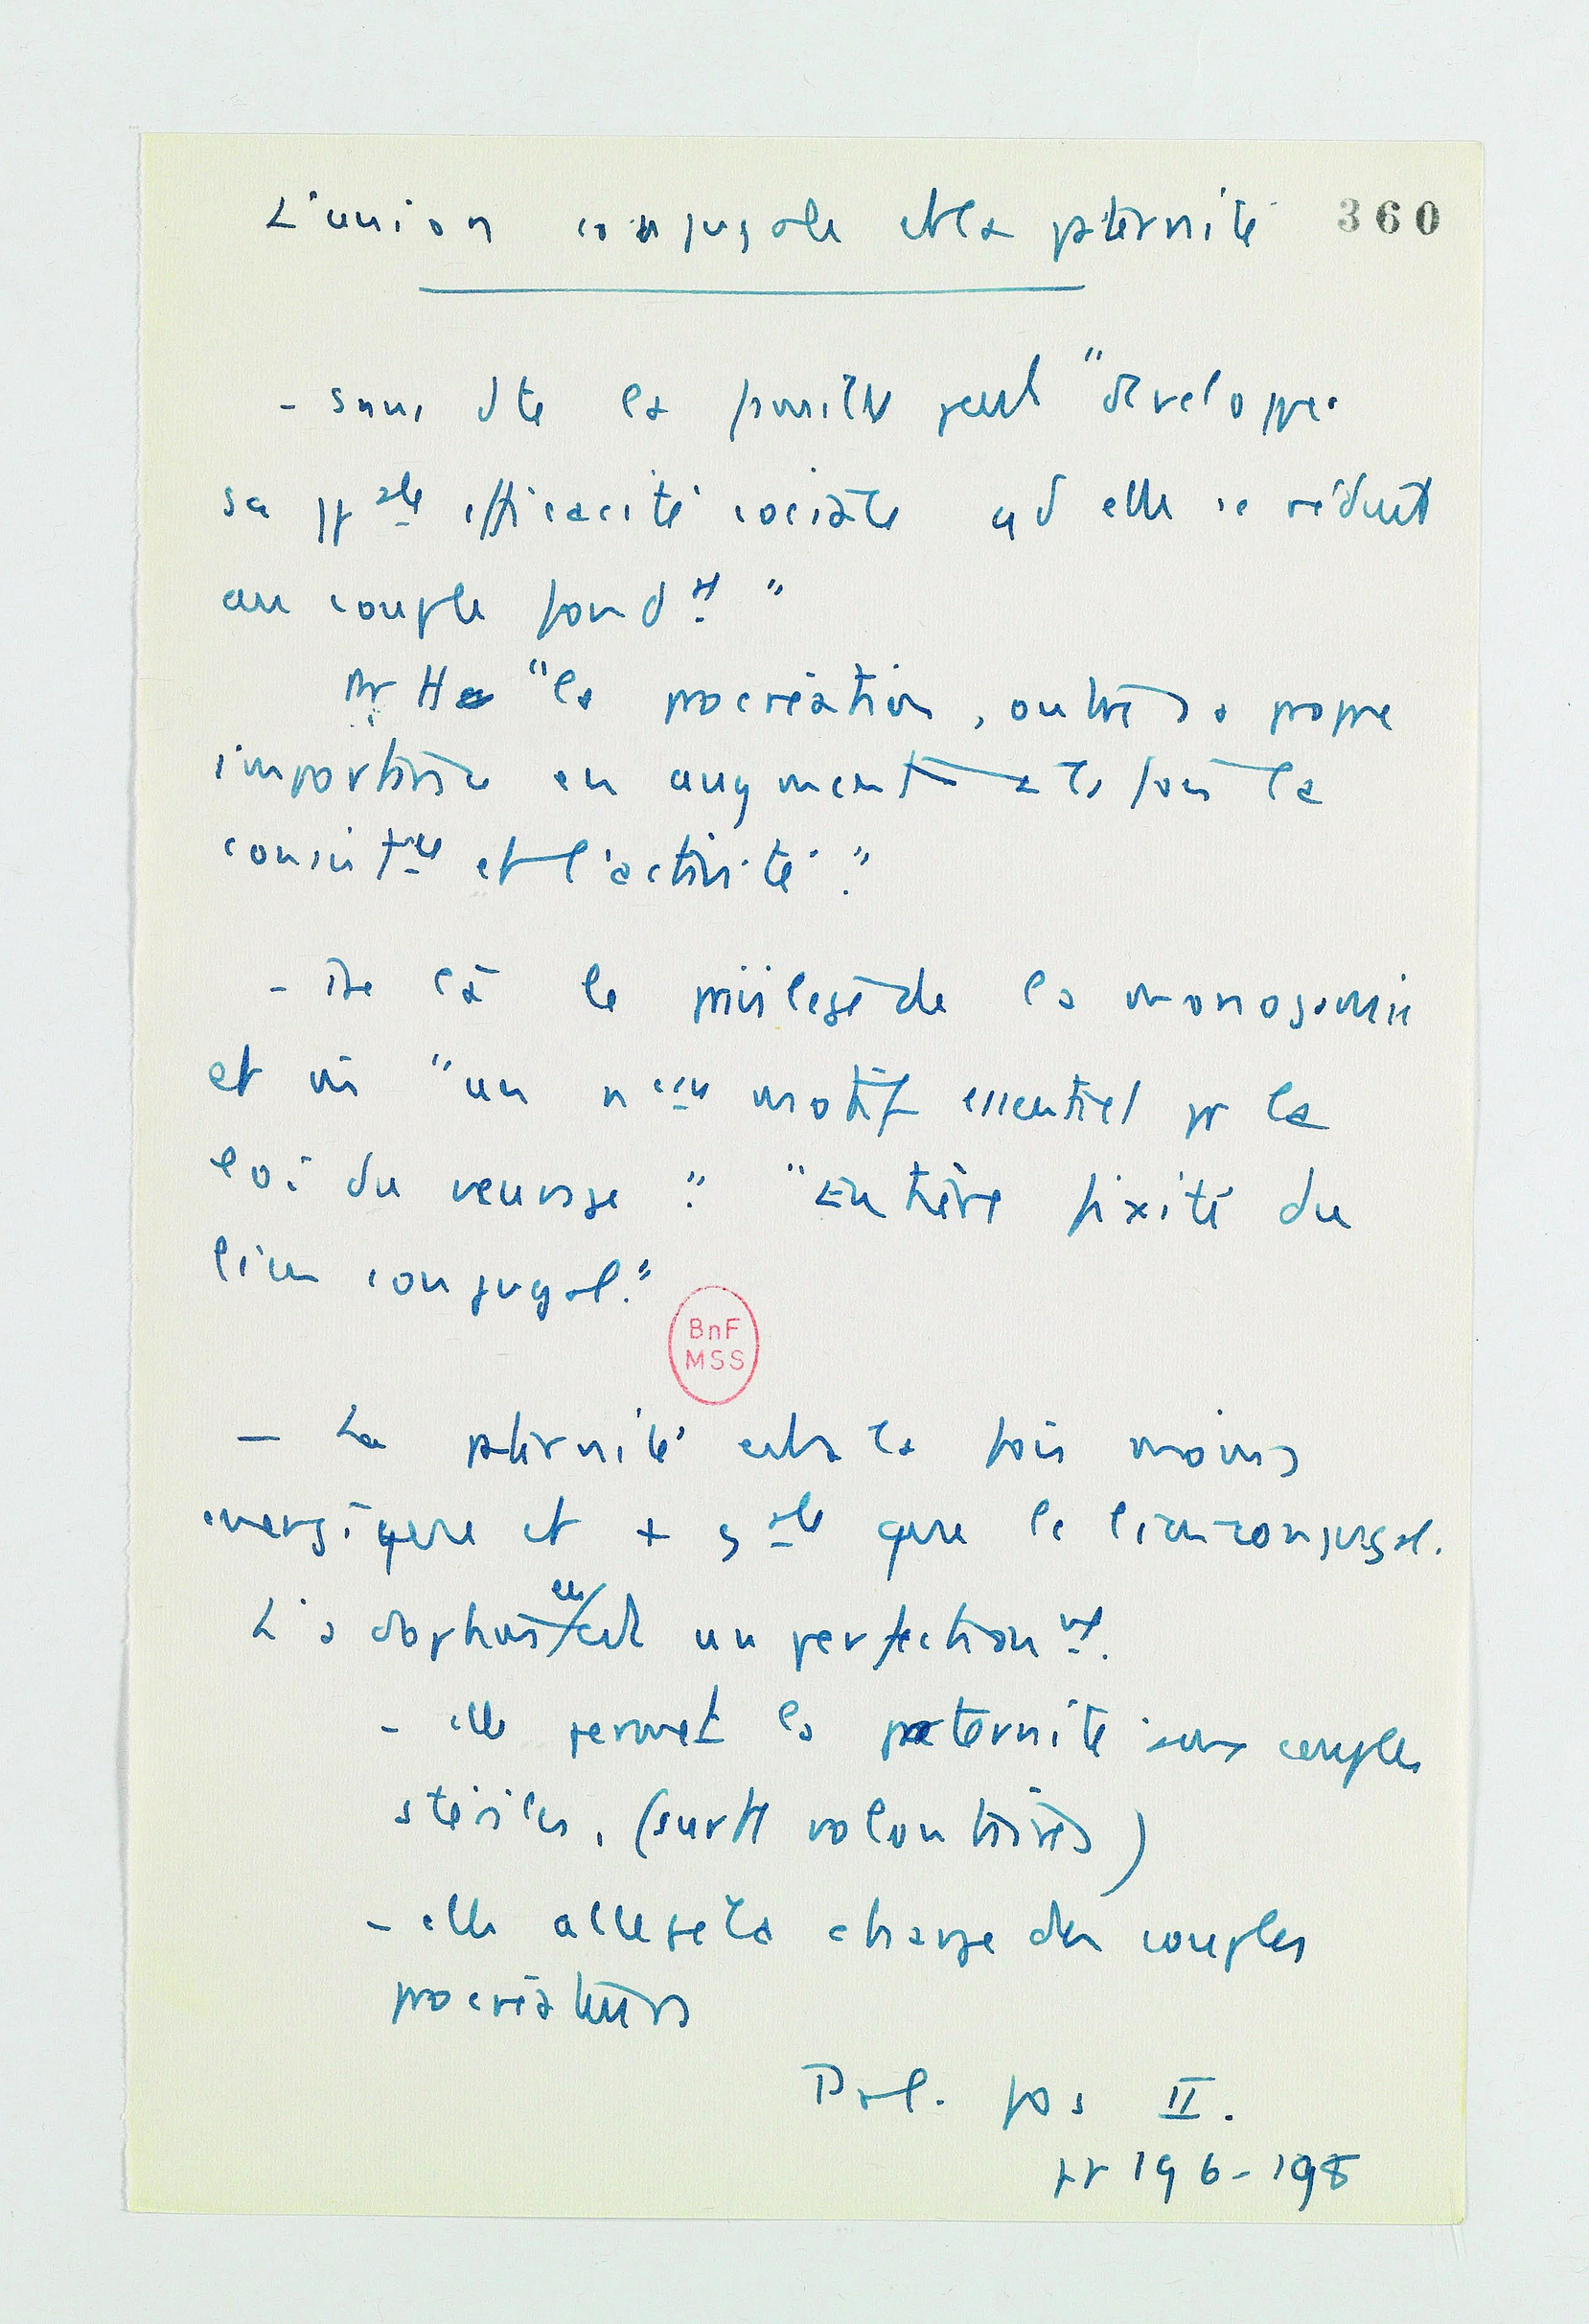 L'union conjugale et la paternité
360
- sans dte la famille peut "développer
sa pp ale efficacité sociale qd elle se réduit
au couple fond al "
"la procréation, outre sa propre
importance en augmente à la fois la
consist ce et l'activité."
- De là le privilège de la monogamie
et "un n eau motif essentiel pr la
loi du veuvage". "Entière fixité du
lien conjugal."
BnF
MSS
- La paternité est à la fois moins
énergique et + g ale que le lien conjugal.
L'adoption en est un perfectionn mt.
- elle permet la paternité aux couples
stériles, (surtt volontaires)
- elle allège la charge des couples
procréateurs
Pol. pos II.
pp 196-198